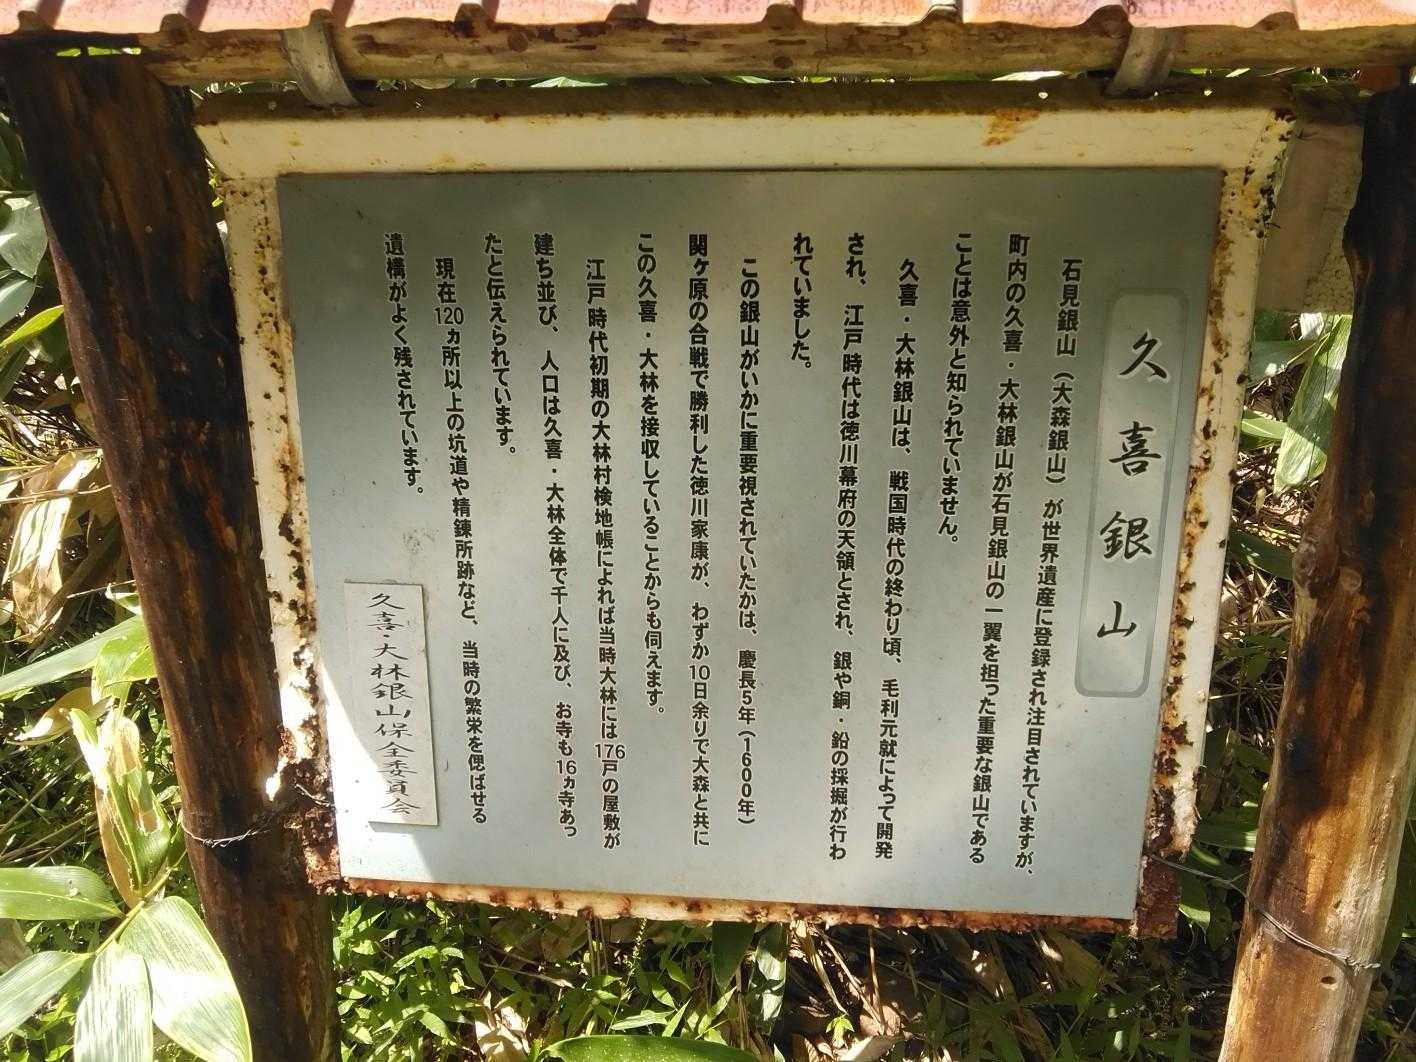 久喜銀山
石見銀山（大森銀山）が世界遺産に登録され注目されていますが、
町内の久喜・大林銀山が石見銀山の一翼を担った重要な銀山である
ことは意外と知られていません。
久喜・大林銀山は、戦国時代の終わり頃、毛利元就によって開発
され、江戸時代は徳川幕府の天領とされ、銀や銅・鉛の採掘が行わ
れていました。
この銀山がいかに重要視されていたかは、慶長5年（1600年）
関ヶ原の合戦で勝利した徳川家康が、わずか10日余りで大森と共に
この久喜・大林を接収していることからも伺えます。
江戸時代初期の大林村検地帳によれば当時大林には176戸の屋敷が
建ち並び、人口は久喜・大林全体で千人に及び、お寺も16ヵ寺あっ
たと伝えられています。
現在120ヵ所以上の坑道や精錬所跡など、当時の繁栄を偲ばせる
遺構がよく残されています。
久喜・大林銀山保全委員会